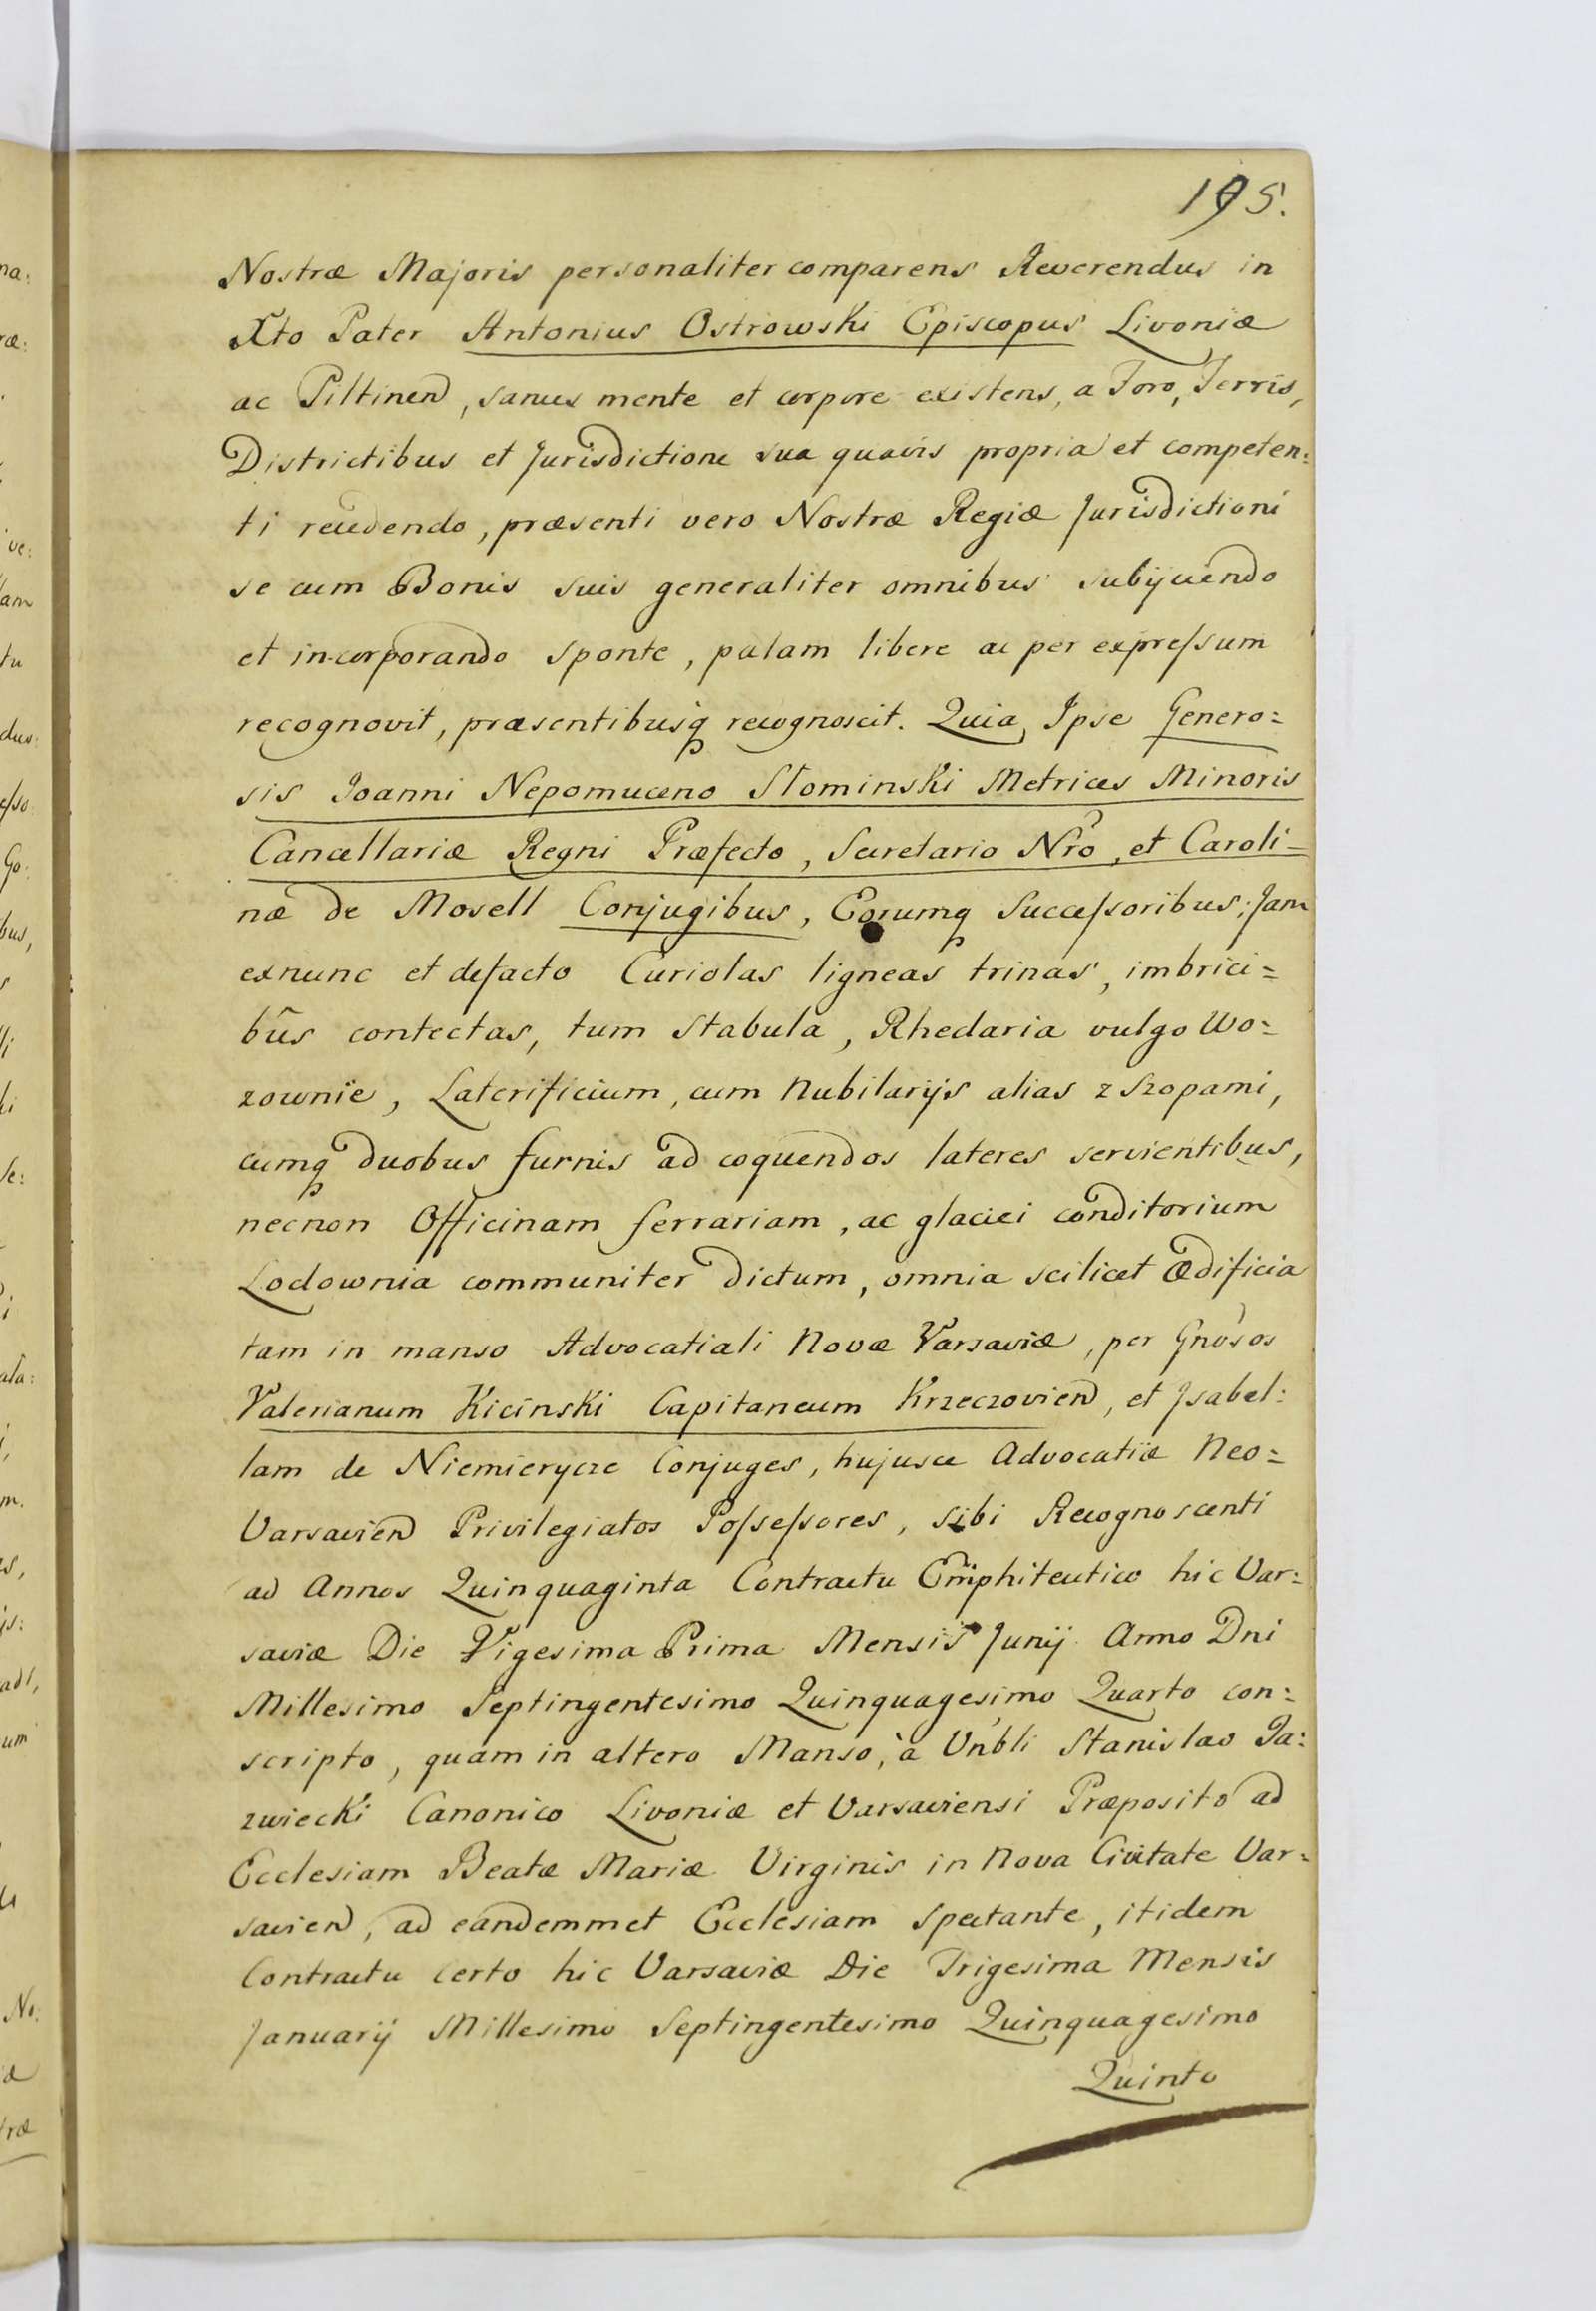 195.
Nostræ Majoris personaliter comparens Reverendus in
Xto Pater Antonius Ostrowski Episcopus Livoniæ
ac Piltinen, sanus mente et corpore existens, a Foro, Terris,
Districtibus et Jurisdictione sua quavis propria et competen:
ti recedendo, præsenti vero Nostræ Regiæ Jurisdictioni
se cum Bonis suis generaliter omnibus subijcendo
et incorporando sponte, palam libere ac per expressum
recognovit, præsentibusq recognoscit. Quia Ipse Genero:
sis Joanni Nepomuceno Słominski Metrices Minoris
Cancellariæ Regni Præfecto, Secretario Nro, et Caroli-
næ de Mosell Conjugibus, Eorumq Successoribus; Jam
exnunc et defacto Curiolas ligneas trinas, imbrici=
bus contectas, tum Stabula, Rhedaria vulgo Wo:
zownie, Laterificium, cum Nubilarijs alias z Szopami,
cumq duobus furnis ad coquendos lateres servientibus,
necnon Officinam ferrariam, ac glaciei conditorium
Lodownia communiter dictum, omnia scilicet Ædificia
tam in manso Advocatiali Novæ Varsaviæ, per Gnosos
Valerianum Kicinski Capitaneum Krzeczovien, et Isabel:
lam de Niemierycze Conjuges, hujusce Advocatiæ Neo=
Varsavien Privilegiatos Possessores, sibi Recognoscenti
ad Annos Quinquaginta Contractu Emphiteutico hic Var:
saviæ Die Vigesima Prima Mensis Junij Anno Dni
Millesimo Septingentesimo Quinquagesimo Quarto con:
scripto, quam in altero Manso, à Vnbli Stanislao Ja:
zwiecki Canonico Livoniæ et Varsaviensi Præposito ad
Ecclesiam Beatæ Mariæ Virginis in Nova Civitate Var=
savien, ad eandemmet Ecclesiam spectante, itidem
Contractu certo hic Varsaviæ Die Trigesima Mensis
Januarij Millesimo Septingentesimo Quinquagesimo
Quinto